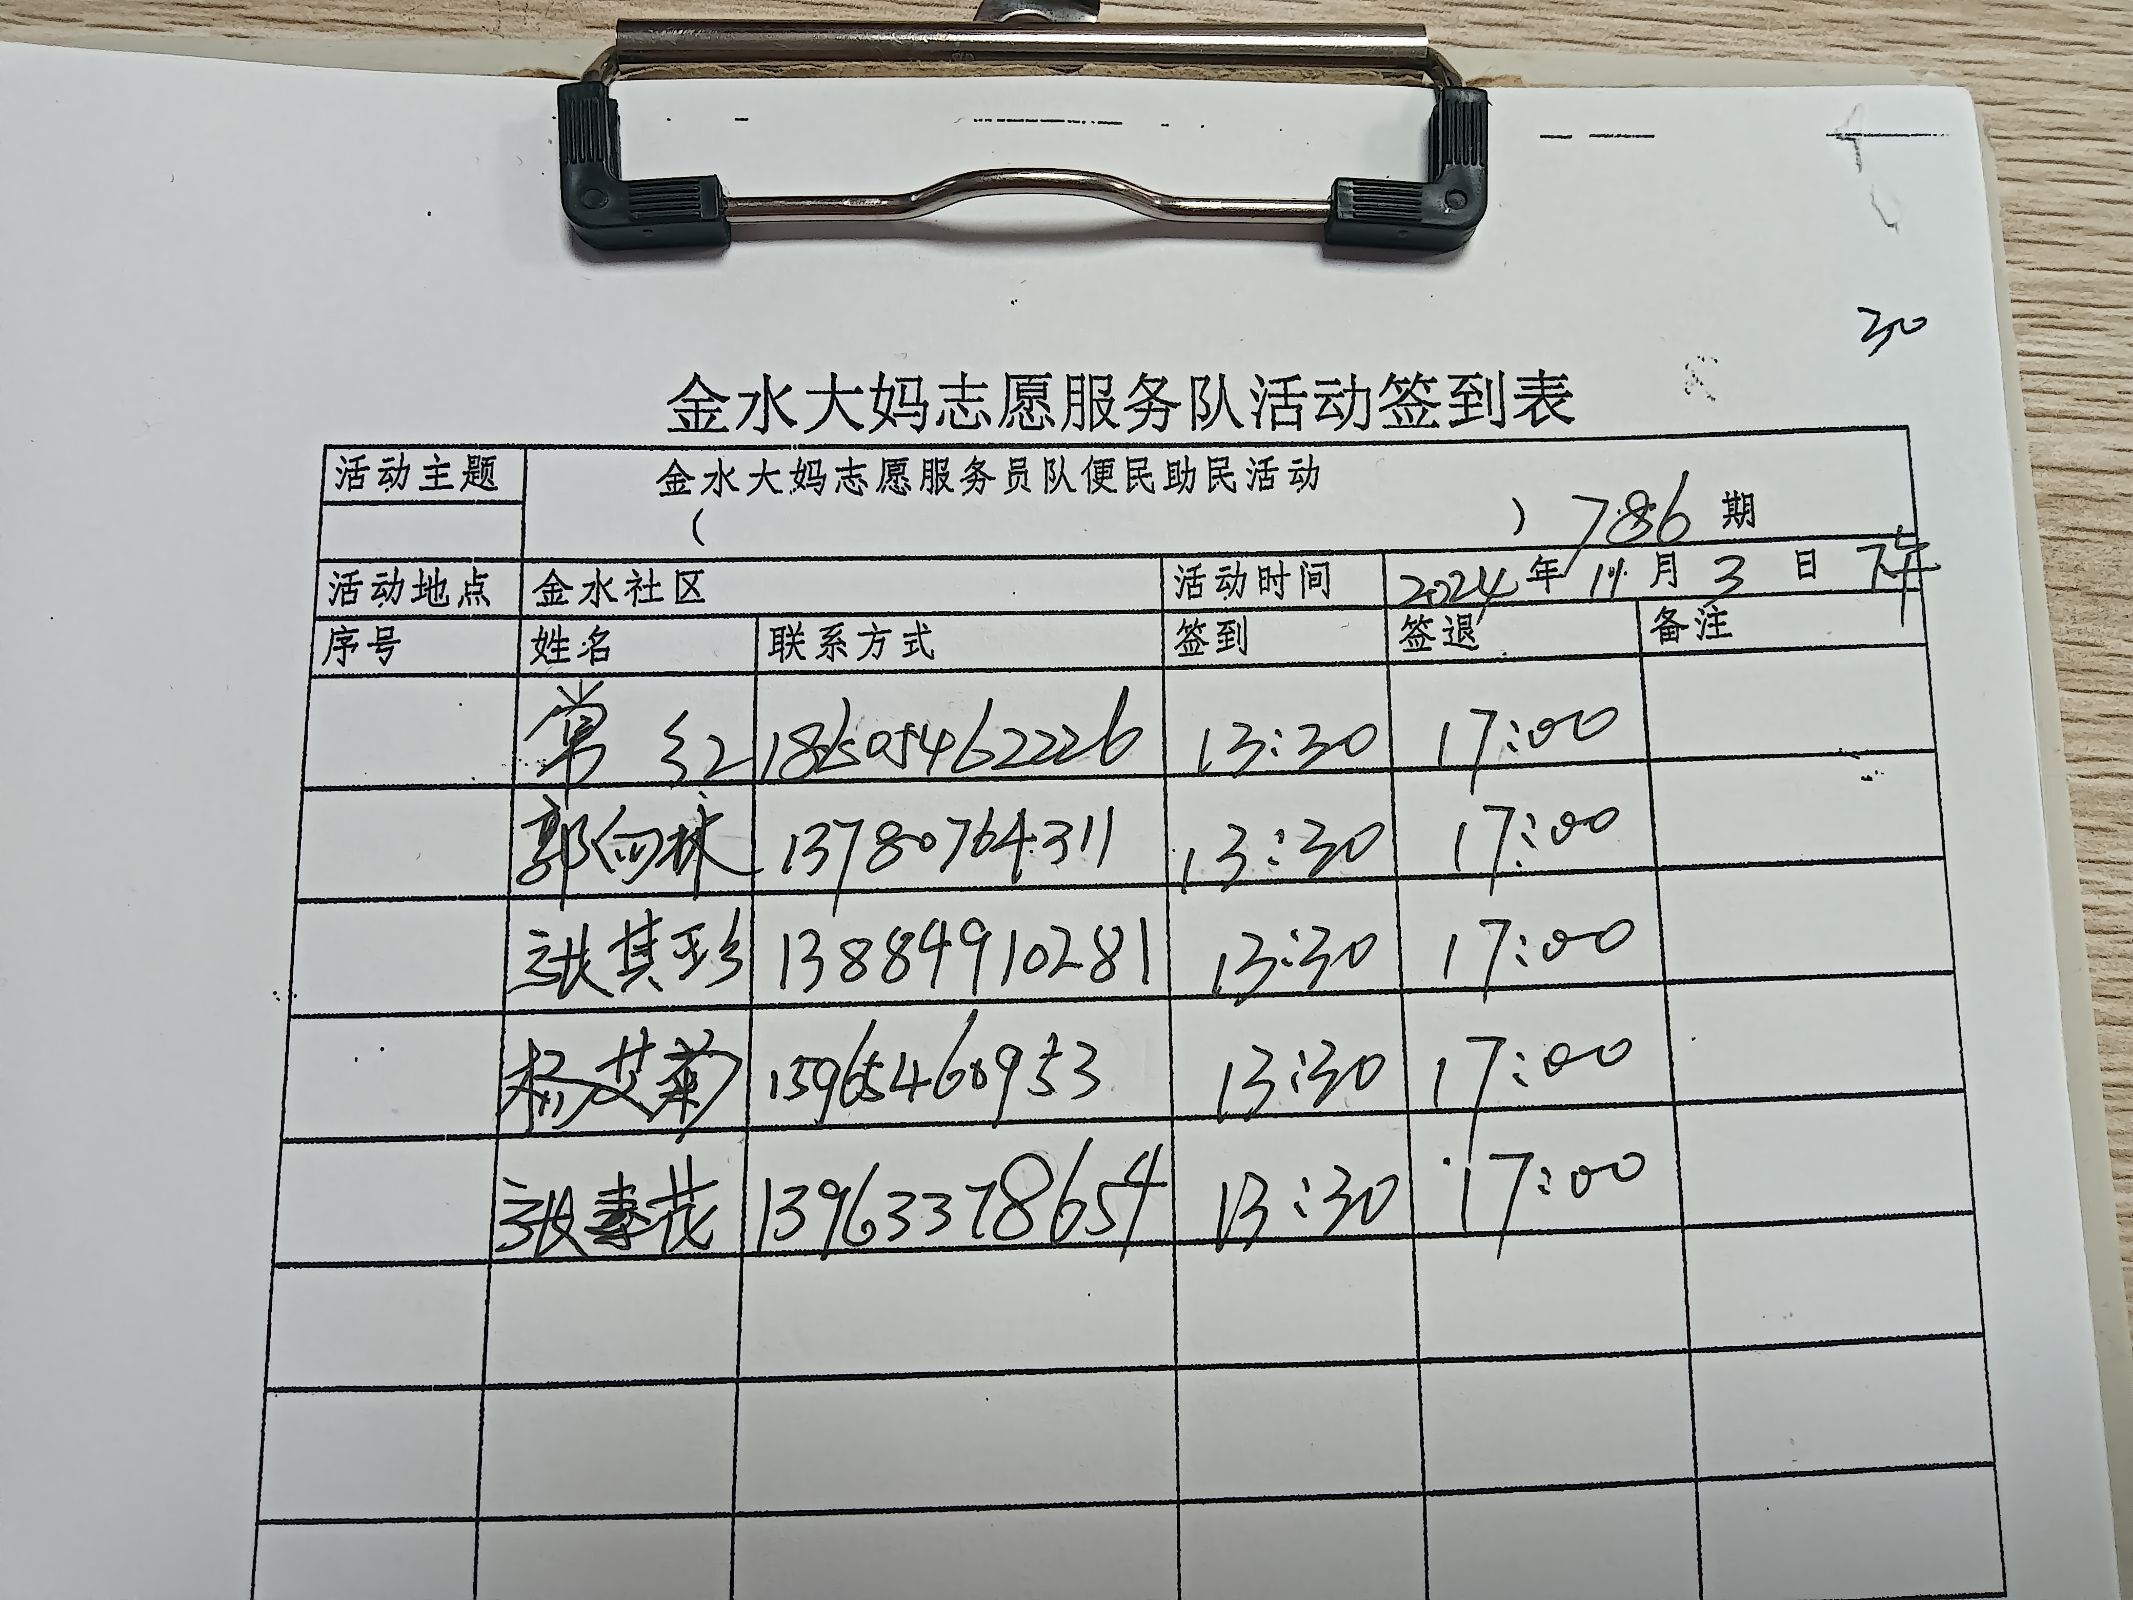 30
金水大妈志愿服务队活动签到表
活动主题 金水大妈志愿服务员队便民助民活动
( ) 786 期
活动地点 金水社区 活动时间 2024 年 11 月 3 日 下午
序号 姓名 联系方式 签到 签退 备注
常红 18605462226 13:30 17:00
郭向林 13780764311 13:30 17:00
张其珍 13884910281 13:30 17:00
杨艾菊 15965460953 13:30 17:00
张春茂 13963378654 13:30 17:00